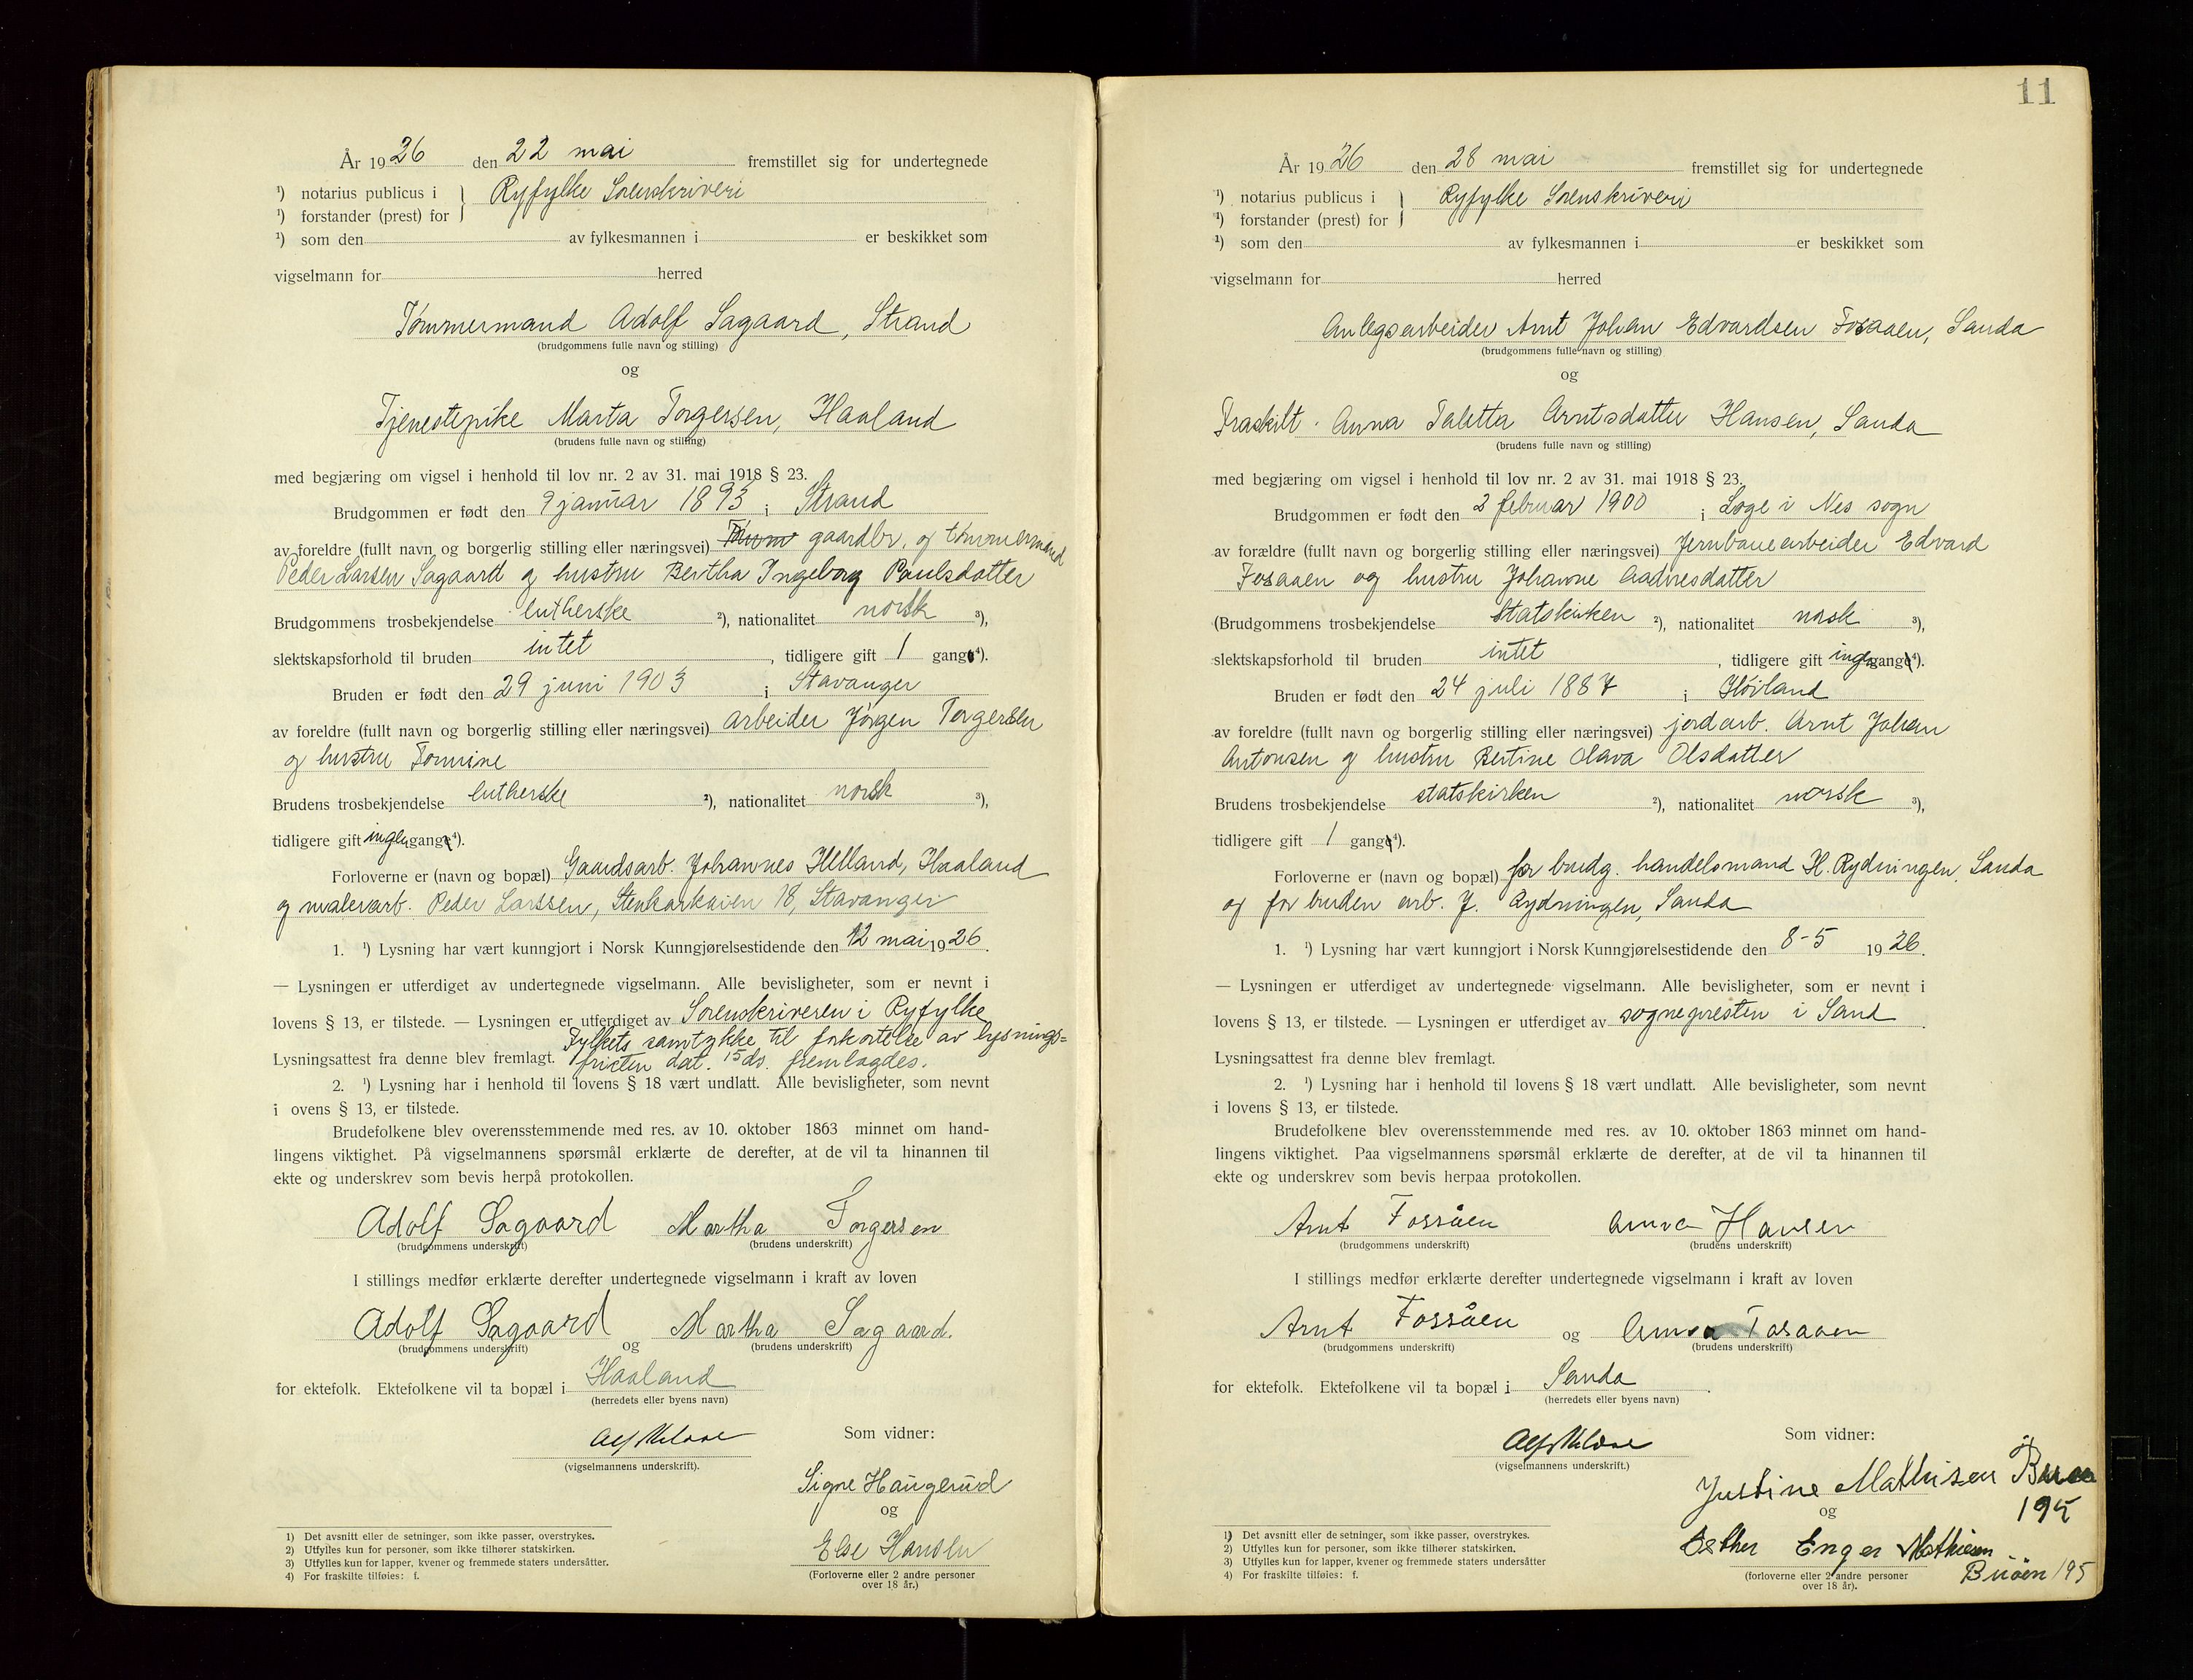 År 1926 den 22 mai fremstillet sig for undertegnede
¹) notarius publicus i } Ryfylke Sorenskriveri
¹) forstander (prest) for
¹) som den av fylkesmannen i er beskikket som
vigselmann for herred
Tømmermand Adolf Sagaard, Strand
(brudgommens fulle navn og stilling)
og
Tjenestepike Marta Torgersen, Haaland
(brudens fulle navn og stilling)
med begjæring om vigsel i henhold til lov nr. 2 av 31. mai 1918 § 23.
Brudgommen er født den 9 januar 1893 i Strand
av foreldre (fullt navn og borgerlig stilling eller næringsvei) gaardbr. og tømmermand
Peder Larsen Sagaard og hustru Bertha Ingeborg Paulsdatter
Brudgommens trosbekjendelse lutherske ²), nationalitet norsk ³),
slektskapsforhold til bruden intet, tidligere gift 1 gang ⁴).
Bruden er født den 29 juni 1903 i Stavanger
av foreldre (fullt navn og borgerlig stilling eller næringsvei) arbeider Jørgen Torgersen
og hustru Tomine
Brudens trosbekjendelse lutherske ²), nationalitet norsk ³),
tidligere gift ingen gange⁴).
Forloverne er (navn og bopæl) Gaardsarb. Johannes Helland, Haaland
og malerarb. Peder Larssen, Stenkarkaien 18, Stavanger
1. ¹) Lysning har vært kunngjort i Norsk Kunngjørelsestidende den 12 mai 1926.
— Lysningen er utferdiget av undertegnede vigselmann. Alle bevisligheter, som er nevnt i
lovens § 13, er tilstede. — Lysningen er utferdiget av Sorenskriveren i Ryfylke
Fylkets samtykke til forkortelse av lysnings=
Lysningsattest fra denne blev fremlagt. fristen dat. 15 ds. fremlagdes.
2. ¹) Lysning har i henhold til lovens § 18 vært undlatt. Alle bevisligheter, som nevnt
i ovens § 13, er tilstede.
Brudefolkene blev overensstemmende med res. av 10. oktober 1863 minnet om hand-
lingens viktighet. På vigselmannens spørsmål erklærte de derefter, at de vil ta hinannen til
ekte og underskrev som bevis herpå protokollen.
Adolf Sagaard Martha Torgersen
(brudgommens underskrift) (brudens underskrift)
I stillings medfør erklærte derefter undertegnede vigselmann i kraft av loven
Adolf Sagaard og Martha Sagaard.
(brudgommens underskrift) (brudens underskrift)
for ektefolk. Ektefolkene vil ta bopæl i Haaland
(herredets eller byens navn)
Som vidner:
(vigselmannens underskrift).
Signe Haugerud
og
Else Hansen
(Forloverne eller 2 andre personer
over 18 år.)
1) Det avsnitt eller de setninger, som ikke passer, overstrykes.
2) Utfylles kun for personer, som ikke tilhører statskirken.
3) Utfylles kun for lapper, kvener og fremmede staters undersåtter.
4) For fraskilte tilføies: f.
11
År 1926 den 28 mai fremstillet sig for undertegnede
¹) notarius publicus i } Ryfylke Sorenskriveri
¹) forstander (prest) for
¹) som den av fylkesmannen i er beskikket som
vigselmann for herred
Anlegsarbeider Arnt Johan Edvardsen Fosaaen, Sauda
(brudgommens fulle navn og stilling)
og
Fraskilt Anna Taletta Arntsdatter Hansen, Sauda
(brudens fulle navn og stilling)
med begjæring om vigsel i henhold til lov nr. 2 av 31. mai 1918 § 23.
Brudgommen er født den 2 februar 1900 i Løge i Nes sogn
av forældre (fullt navn og borgerlig stilling eller næringsvei) Jernbanearbeider Edvard
Fosaaen og hustru Johanne Aadnesdatter
(Brudgommens trosbekjendelse Statskirken ²), nationalitet norsk ³),
slektskapsforhold til bruden intet, tidligere gift ingen gange⁴).
Bruden er født den 24 juli 1887 i Høiland
av foreldre (fullt navn og borgerlig stilling eller næringsvei) jordarb. Arnt Johan
Antonsen og hustru Bertine Olava Olsdatter
Brudens trosbekjendelse statskirken ²), nationalitet norsk ³),
tidligere gift 1 gange⁴).
Forloverne er (navn og bopæl) for brudg. handelsmand H. Rydningen, Sauda
og for bruden arb. J. Rydningen, Sauda
1. ¹) Lysning har vært kunngjort i Norsk Kunngjørelsestidende den 8-5 1926.
— Lysningen er utferdiget av undertegnede vigselmann. Alle bevisligheter, som er nevnt i
lovens § 13, er tilstede. — Lysningen er utferdiget av sognepresten i Sand.
Lysningsattest fra denne blev fremlagt.
2. ¹) Lysning har i henhold til lovens § 18 vært undlatt. Alle bevisligheter, som nevnt
i lovens § 13, er tilstede.
Brudefolkene blev overensstemmende med res. av 10. oktober 1863 minnet om hand-
lingens viktighet. Paa vigselmannens spørsmål erklærte de derefter, at de vil ta hinannen til
ekte og underskrev som bevis herpaa protokollen.
Arnt Fossåen Anna Hansen
(brudgommens underskrift) (brudens underskrift)
I stillings medfør erklærte derefter undertegnede vigselmann i kraft av loven
Arnt Fossåen og Anna Fosaaen
(brudgommens underskrift) (brudens underskrift)
for ektefolk. Ektefolkene vil ta bopæl i Sauda.
(herredets eller byens navn)
Som vidner:
(vigselmannens underskrift.)
Justine Mathisen
og 195
Esther Enger Mathiesen
Buøen 195
(forloverne eller 2 andre personer
over 18 år).
1) Det avsnitt eller de setninger, som ikke passer, overstrykes.
2) Utfylles kun for personer, som ikke tilhører statskirken.
3) Utfylles kun for lapper, kvener og fremmede staters undersåtter
4) For fraskilte tilføies: f.